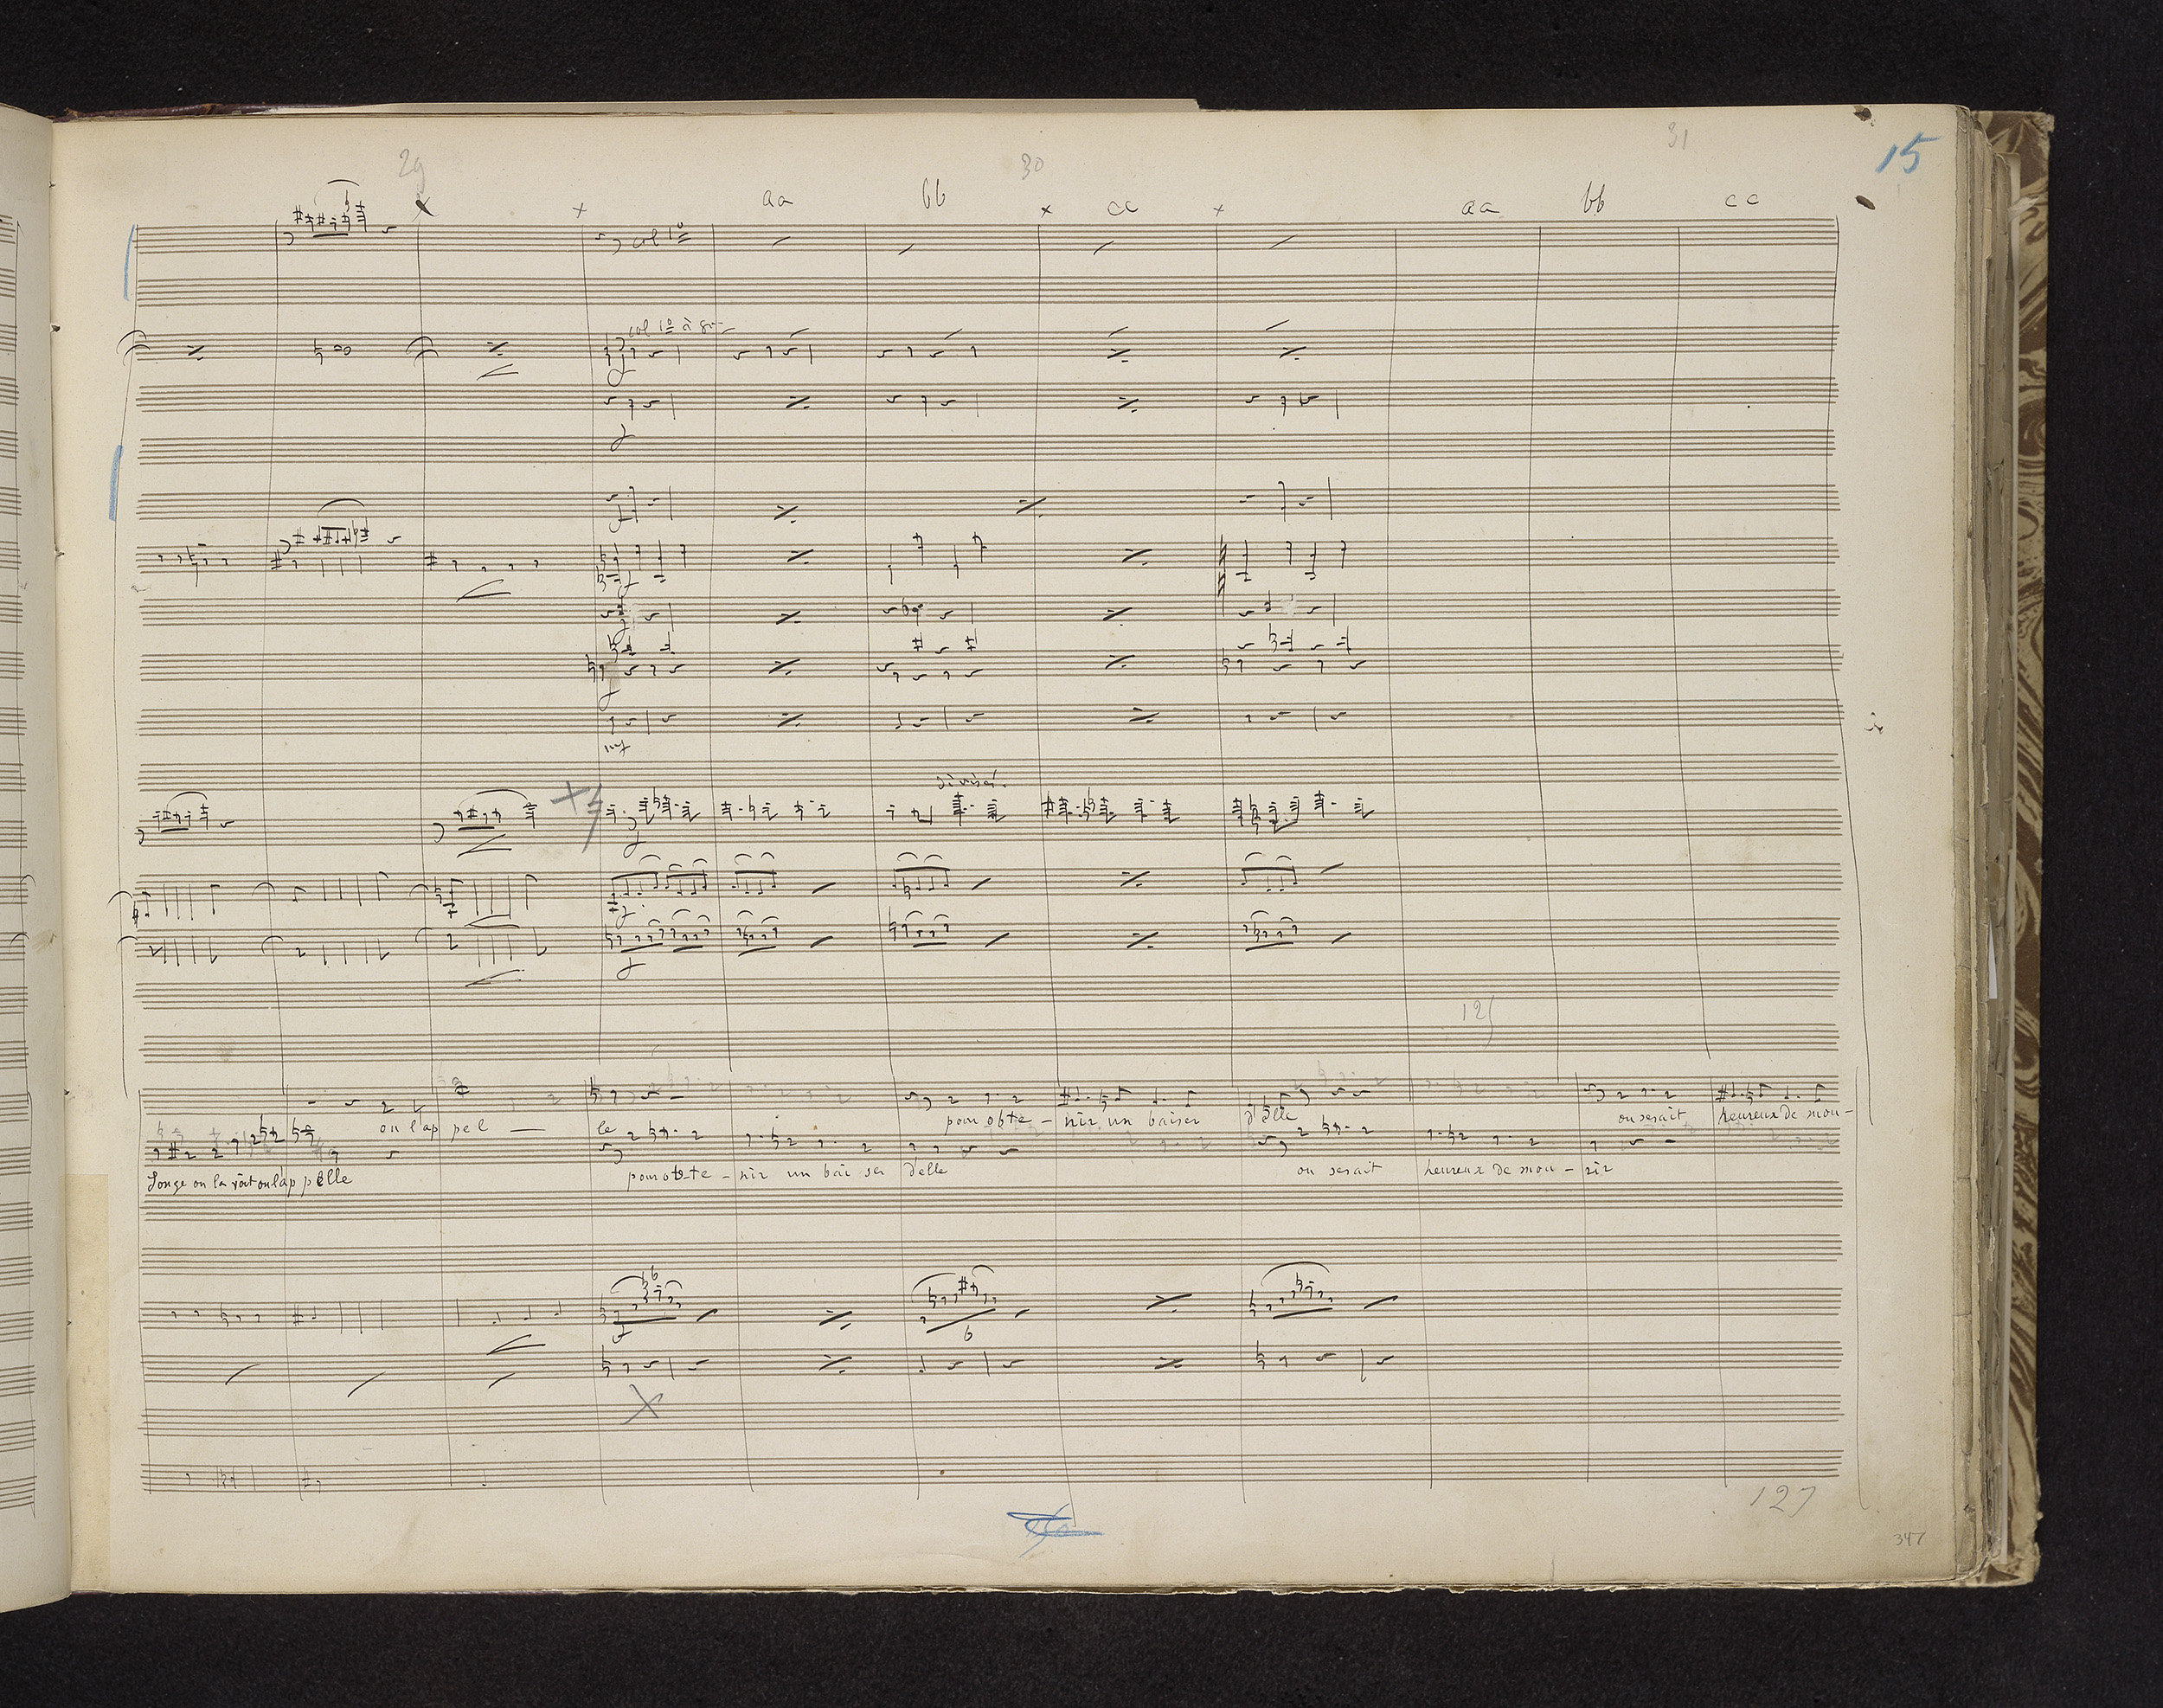 29 30 31 15
aa bb cc aa bb cc
col 1º
col 1º à 8va
f
f
mf
divisés
f
f
125
on l'ap pel — le pour obte - nir un baiser d'elle on serait heureux de mou -
Songe on la voit on lap pelle pour obte - nir un bai ser d'elle on serait heureux de mou - rir
6
f 6
127
347